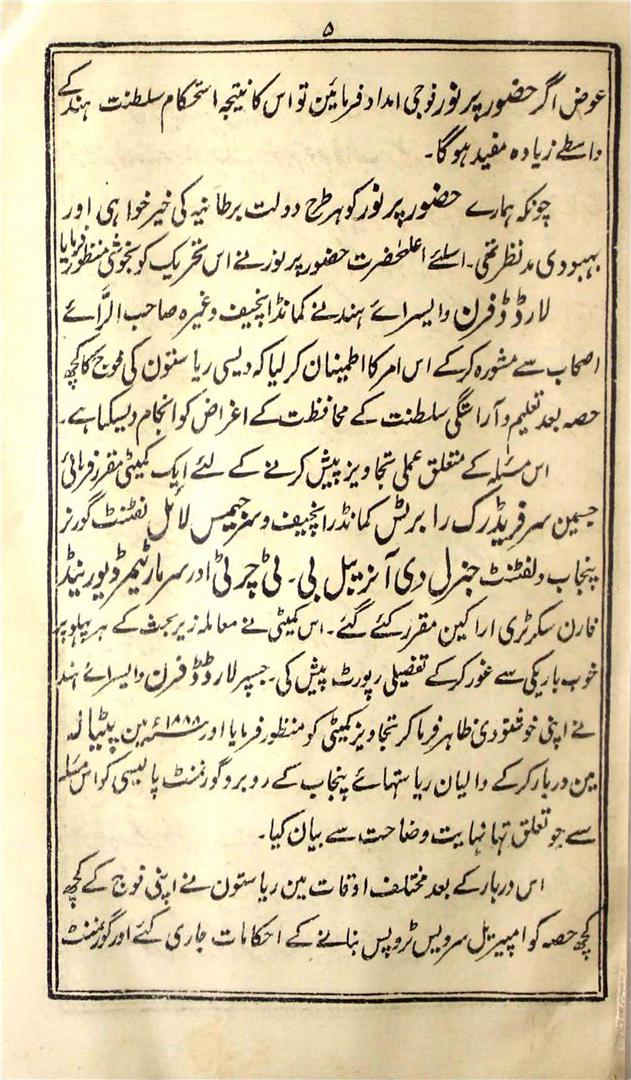 ۵
عوض اگر حضور پر نور فوجی امداد فرمائین تو اس کا نتیجہ استحکام سلطنت ہند کے
واسطے زیادہ مفید ہوگا۔
چونکہ ہمارے حضور پر نور کو ہر طرح دولت برطانیہ کی خیر خواہی اور
بہبودی مد نظر تھی۔ اسلئے اعلحضرت حضور پر نور نے اس تحریک کو بخوشی منظور فرمایا
لارڈ ڈفرن وایسرائے ہند نے کمانڈر انچیف وغیرہ صاحب الرّائے
اصحاب سے مشورہ کرکے اس امر کا اطمینان کر لیا کہ دیسی ریاستون کی فوج کا کچھ
حصہ بعد تعلیم و آراستگی سلطنت کے محافظت کے اغراض کو انجام دیسکتا ہے۔
اس مسٔلہ کے متعلق عملی تجاویز پیش کرنے کے لئے ایک کمیٹی مقرر فرمائی
جسمین سر فریڈرک رابرٹس کمانڈر انچیف و سر جیمس لائل لفٹنٹ گورنر
پنجاب و لفٹنٹ جنرل دی آنریبل بی۔ ٹی چرٹی اور سر مارٹیمر ڈیورینڈ
فارن سکرٹری اراکین مقرر کئے گئے۔ اس کمیٹی نے معاملہ زیر بحث کے ہر پہلو پر
خوب باریکی سے غور کرکے تفصیلی رپورٹ پیش کی۔ جسپر لارڈ ڈفرن وایسرائے ہند
نے اپنی خوشنودی ظاہر فرما کر تجاویز کمیٹی کو منظور فرمایا اور ۱۸۸۸ء مین پٹیالہ
مین دربار کرکے والیان ریاستہائے پنجاب کے روبرو گورنمنٹ پالیسی کو اس مسٔلہ
سے جو تعلق تہا نہایت وضاحت سے بیان کیا۔
اس دربار کے بعد مختلف اوقات مین ریاستون نے اپنی فوج کے کچھ
کچھ حصہ کو امپیریل سرویس ٹروپس بنانے کے احکامات جاری کئے اور گورنمنٹ